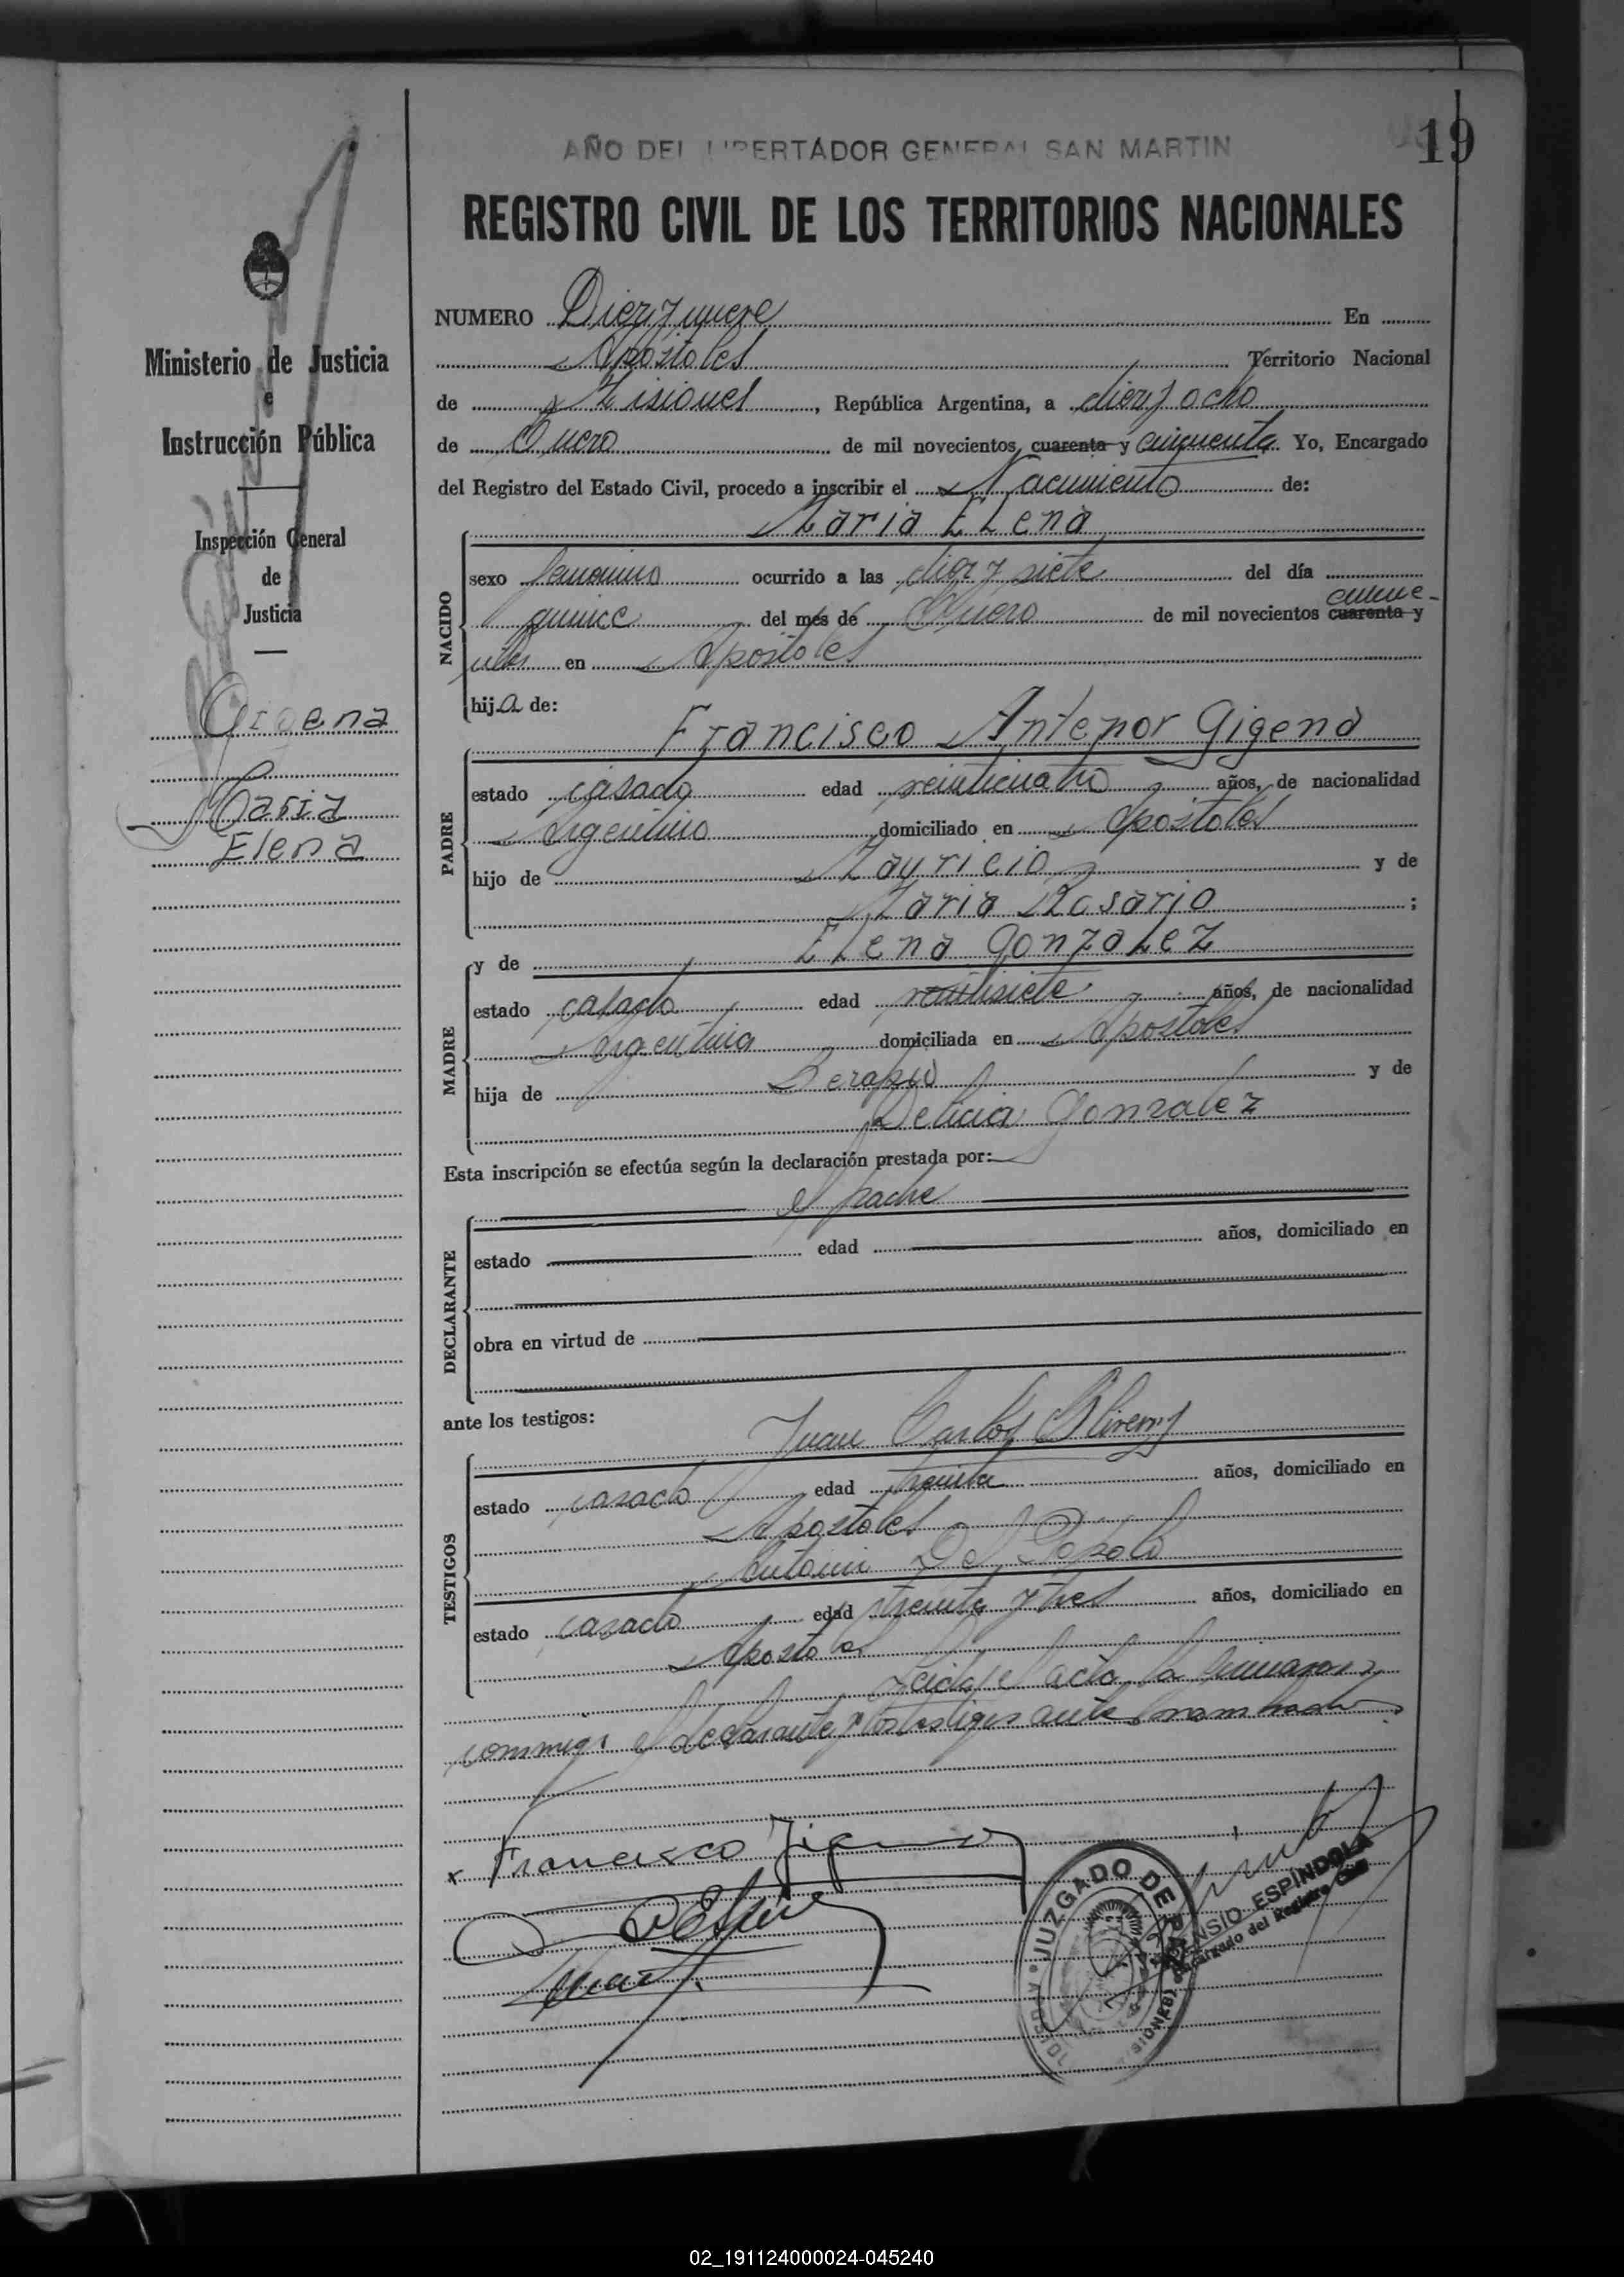 19
AÑO DEL LIBERTADOR GENERAL SAN MARTIN
REGISTRO CIVIL DE LOS TERRITORIOS NACIONALES
Ministerio de Justicia
e
Instrucción Pública
Inspección General
de
Justicia
Gigena
Maria
Elena
NUMERO Diez y nueve En
Apóstoles Territorio Nacional
de Misiones, República Argentina, a diez y ocho
de Enero de mil novecientos cuarenta y cincuenta Yo, Encargado
del Registro del Estado Civil, procedo a inscribir el Nacimiento de:
Maria Elena
NACIDO
sexo femenino ocurrido a las diez y siete del día
quince del més de Enero de mil novecientos cuarenta y cincue-
nta en Apóstoles
hija de:
Francisco Antenor Gigena
PADRE
estado casado edad veinticuatro años, de nacionalidad
Argentino domiciliado en Apóstoles
hijo de Mauricio y de
Maria Rosario ;
y de Elena Gonzalez
MADRE
estado casada edad veintisiete años, de nacionalidad
Argentina domiciliada en Apostoles
hija de Serapio y de
Delicia Gonzalez
Esta inscripción se efectúa según la declaración prestada por:
el padre
DECLARANTE
estado edad años, domiciliado en
obra en virtud de
ante los testigos:
Juan Carlos
TESTIGOS
estado casado edad treinta años, domiciliado en
Apostoles
Antonio Del Popolo
estado casado edad treinta y tres años, domiciliado en
Apostoles
Leida el acta la firmaron
conmigo el declarante y los testigos ante nombrados
Francisco Gigena
JUZGADO DE PAZ
ESPÍNDOLA
Encargado del Registro Civil
02_191124000024-045240